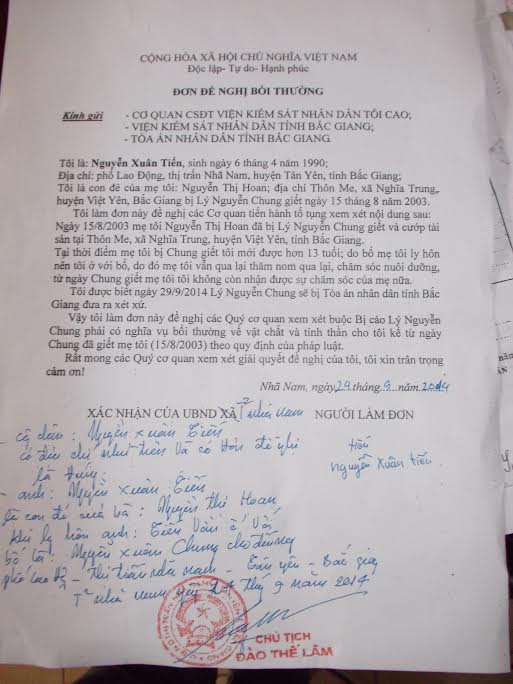 CỘNG HÒA XÃ HỘI CHỦ NGHĨA VIỆT NAM
Độc lập- Tự do- Hạnh phúc
ĐƠN ĐỀ NGHỊ BỒI THƯỜNG
Kính gửi - CƠ QUAN CSĐT VIỆN KIỂM SÁT NHÂN DÂN TỐI CAO;
- VIỆN KIỂM SÁT NHÂN DÂN TỈNH BẮC GIANG;
- TÒA ÁN NHÂN DÂN TỈNH BẮC GIANG
Tôi là: Nguyễn Xuân Tiến, sinh ngày 6 tháng 4 năm 1990;
Địa chỉ: phố Lao Động, thị trấn Nhã Nam, huyện Tân Yên, tỉnh Bắc Giang;
Tôi là con đẻ của mẹ tôi: Nguyễn Thị Hoan; địa chỉ Thôn Me, xã Nghĩa Trung,
huyện Việt Yên, Bắc Giang bị Lý Nguyễn Chung giết ngày 15 tháng 8 năm 2003.
Tôi làm đơn này đề nghị các Cơ quan tiến hành tố tụng xem xét nội dung sau:
Ngày 15/8/2003 mẹ tôi Nguyễn Thị Hoan đã bị Lý Nguyễn Chung giết và cướp tài
sản tại Thôn Me, xã Nghĩa Trung, huyện Việt Yên, tỉnh Bắc Giang.
Tại thời điểm mẹ tôi bị Chung giết tôi mới được hơn 13 tuổi; do bố mẹ tôi ly hôn
nên tôi ở với bố, do đó mẹ tôi vẫn qua lại thăm nom qua lại, chăm sóc nuôi dưỡng,
từ ngày Chung giết mẹ tôi tôi không còn nhận được sự chăm sóc của mẹ nữa.
Tôi được biết ngày 29/9/2014 Lý Nguyễn Chung sẽ bị Tòa án nhân dân tỉnh Bắc
Giang đưa ra xét xử.
Vậy tôi làm đơn này đề nghị các Quý cơ quan xem xét buộc Bị cáo Lý Nguyễn
Chung phải có nghĩa vụ bồi thường về vật chất và tinh thần cho tôi kể từ ngày
Chung đã giết mẹ tôi (15/8/2003) theo quy định của pháp luật.
Rất mong các Quý cơ quan xem xét giải quyết đề nghị của tôi, tôi xin trân trọng
cảm ơn!
Nhã Nam, ngày 29 tháng 9 năm 2014
XÁC NHẬN CỦA UBND XÃ T2 Nhã Nam NGƯỜI LÀM ĐƠN
Nguyễn Xuân Tiến
có địa chỉ như trên và có đơn đề nghị
Tiến
là đúng
Nguyễn Xuân Tiến
- anh: Nguyễn Xuân Tiến
là con đẻ bà: Nguyễn Thị Hoan
khi ly hôn anh: Tiến vẫn ở với
bố là: Nguyễn Xuân Chung
Lao Động - Thị trấn Nhã Nam - Tân Yên - Bắc Giang
T2 Nhã Nam ngày 29 tháng 9 năm 2014
CHỦ TỊCH
ĐÀO THẾ LÂM